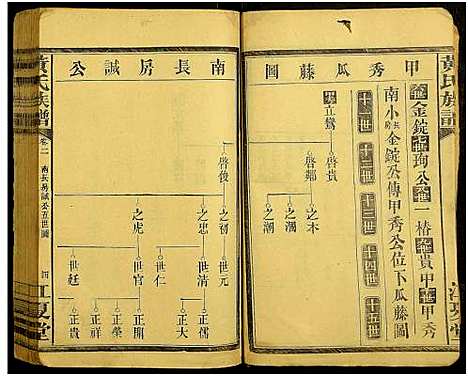 甲秀瓜藤圖
黃氏族譜
江夏堂
金錠 珣公 一椿 貴甲 甲秀
南小長房金錠公傳甲秀公位下瓜藤圖
十一世 十二世 十三世 十四世 十五世
立鴛
啓貴
啓鄰
之木
之潮
南長房誠公
啓俊
之初
之忠
之虎
世元
世清
世仁
世官
世廷
正儒
正大
正開
正榮
正祥
正貴
黃氏族譜
卷二
南長房誠公五世圖
四
江夏堂